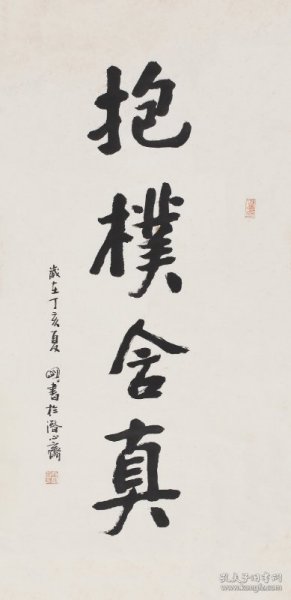 抱樸含真
歲在丁亥夏 書於潛心齋
孔夫子旧书网
www.kongfz.com